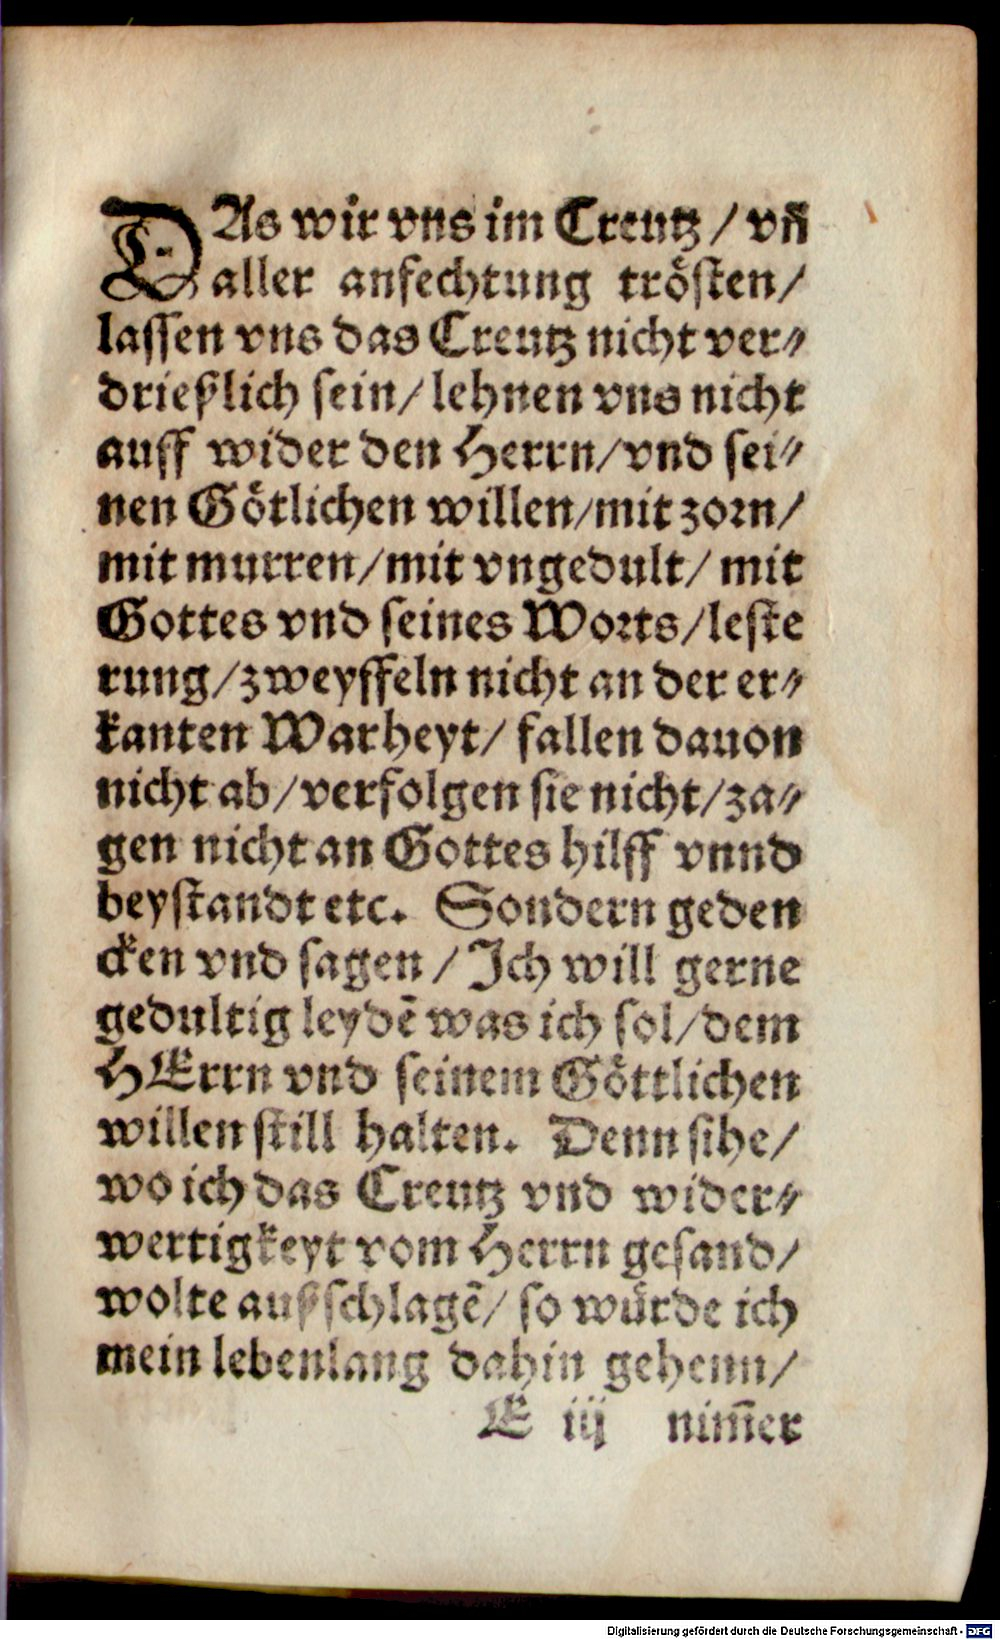 DAs wir vns im Creutz / vn̄
aller anfechtung trösten /
lassen vns das Creutz nicht ver⸗
drießlich sein / lehnen vns nicht
auff wider den Herrn / vnd sei⸗
nen Götlichen willen / mit zorn /
mit murren / mit vngedult / mit
Gottes vnd seines Worts / leste
rung / zweyffeln nicht an der er⸗
kanten Warheyt / fallen dauon
nicht ab / verfolgen sie nicht / za⸗
gen nicht an Gottes hilff vnnd
beystandt etc. Sondern geden
cken vnd sagen / Ich will gerne
gedultig leydē was ich sol / dem
HErrn vnd seinem Göttlichen
willen still halten. Denn sihe /
wo ich das Creutz vnd wider⸗
wertigkeyt vom Herrn gesand /
wolte außschlagē / so würde ich
mein lebenlang dahin gehenn /
E iij nim̄er
Digitalisierung gefördert durch die Deutsche Forschungsgemeinschaft - DFG